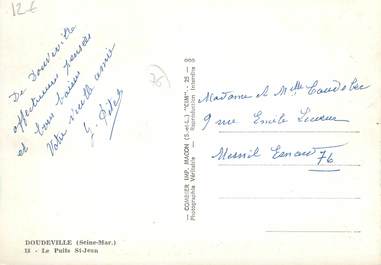 12€
De Doudeville
affectueuses pensées
et bons baisers
Votre vieille amie
G.
COMBIER IMP. MACON (S.-et-L.) "CIM" - 25 - 000
Photographie Véritable - Reproduction Interdite
Madame et Melle
9 rue Emile
Mesnil Esnard 76
DOUDEVILLE (Seine-Mar.)
18 - Le Puits St-Jean